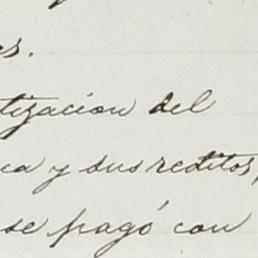 es.
tización del
ca y sus reditos,
se pagó con